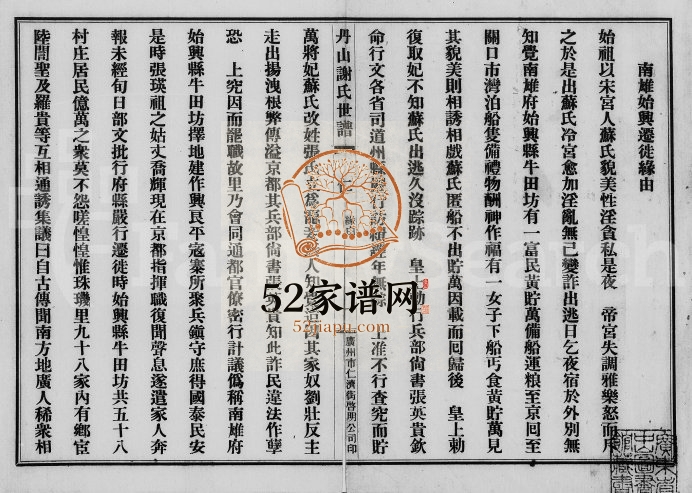 南雄始興遷徙緣由
始祖以宋宮人蘇氏貌美性淫貪私是夜 帝宮失調雅樂怒而斥
之於是出蘇氏冷宮愈加淫亂無已變詐出逃日乞夜宿於外別無
知覺南雄府始興縣牛田坊有一富民黃貯萬備船運粮至京囘至
關口市灣泊船隻備禮物酬神作福有一女子下船丐食黃貯萬見
其貌美則相誘相戲蘇氏匿船不出貯萬因載而囘歸後 皇上勅
復取妃不知蘇氏出逃久沒踪跡 皇 勅行兵部尙書張英貴欽
命行文各省司道州縣嚴行訪 年無 上准不行查究而貯
丹山謝氏世譜
廣州市仁濟街啓明公司印
萬將妃蘇氏改姓張氏 為寵 人知 因其家奴劉壯反主
走出揚洩根弊傳溢京都其兵部尙書張 貴知此詐民違法作孽
恐 上究因而罷職故里乃會同通都官僚密行計議僞稱南雄府
始興縣牛田坊擇地建作興艮平寇寨所聚兵鎮守庶得國泰民安
是時張瑛祖之姑丈喬輝現在京都指揮職復聞聲息遂遣家人奔
報未經旬日部文批行府縣嚴行遷徙時始興縣牛田坊共五十八
村庄居民億萬之衆莫不怨嗟惶惶惟珠璣里九十八家內有鄉宦
陸誾聖及羅貴等互相通誘集議曰自古傳聞南方地廣人稀衆相
52家谱网
52jiapu.com